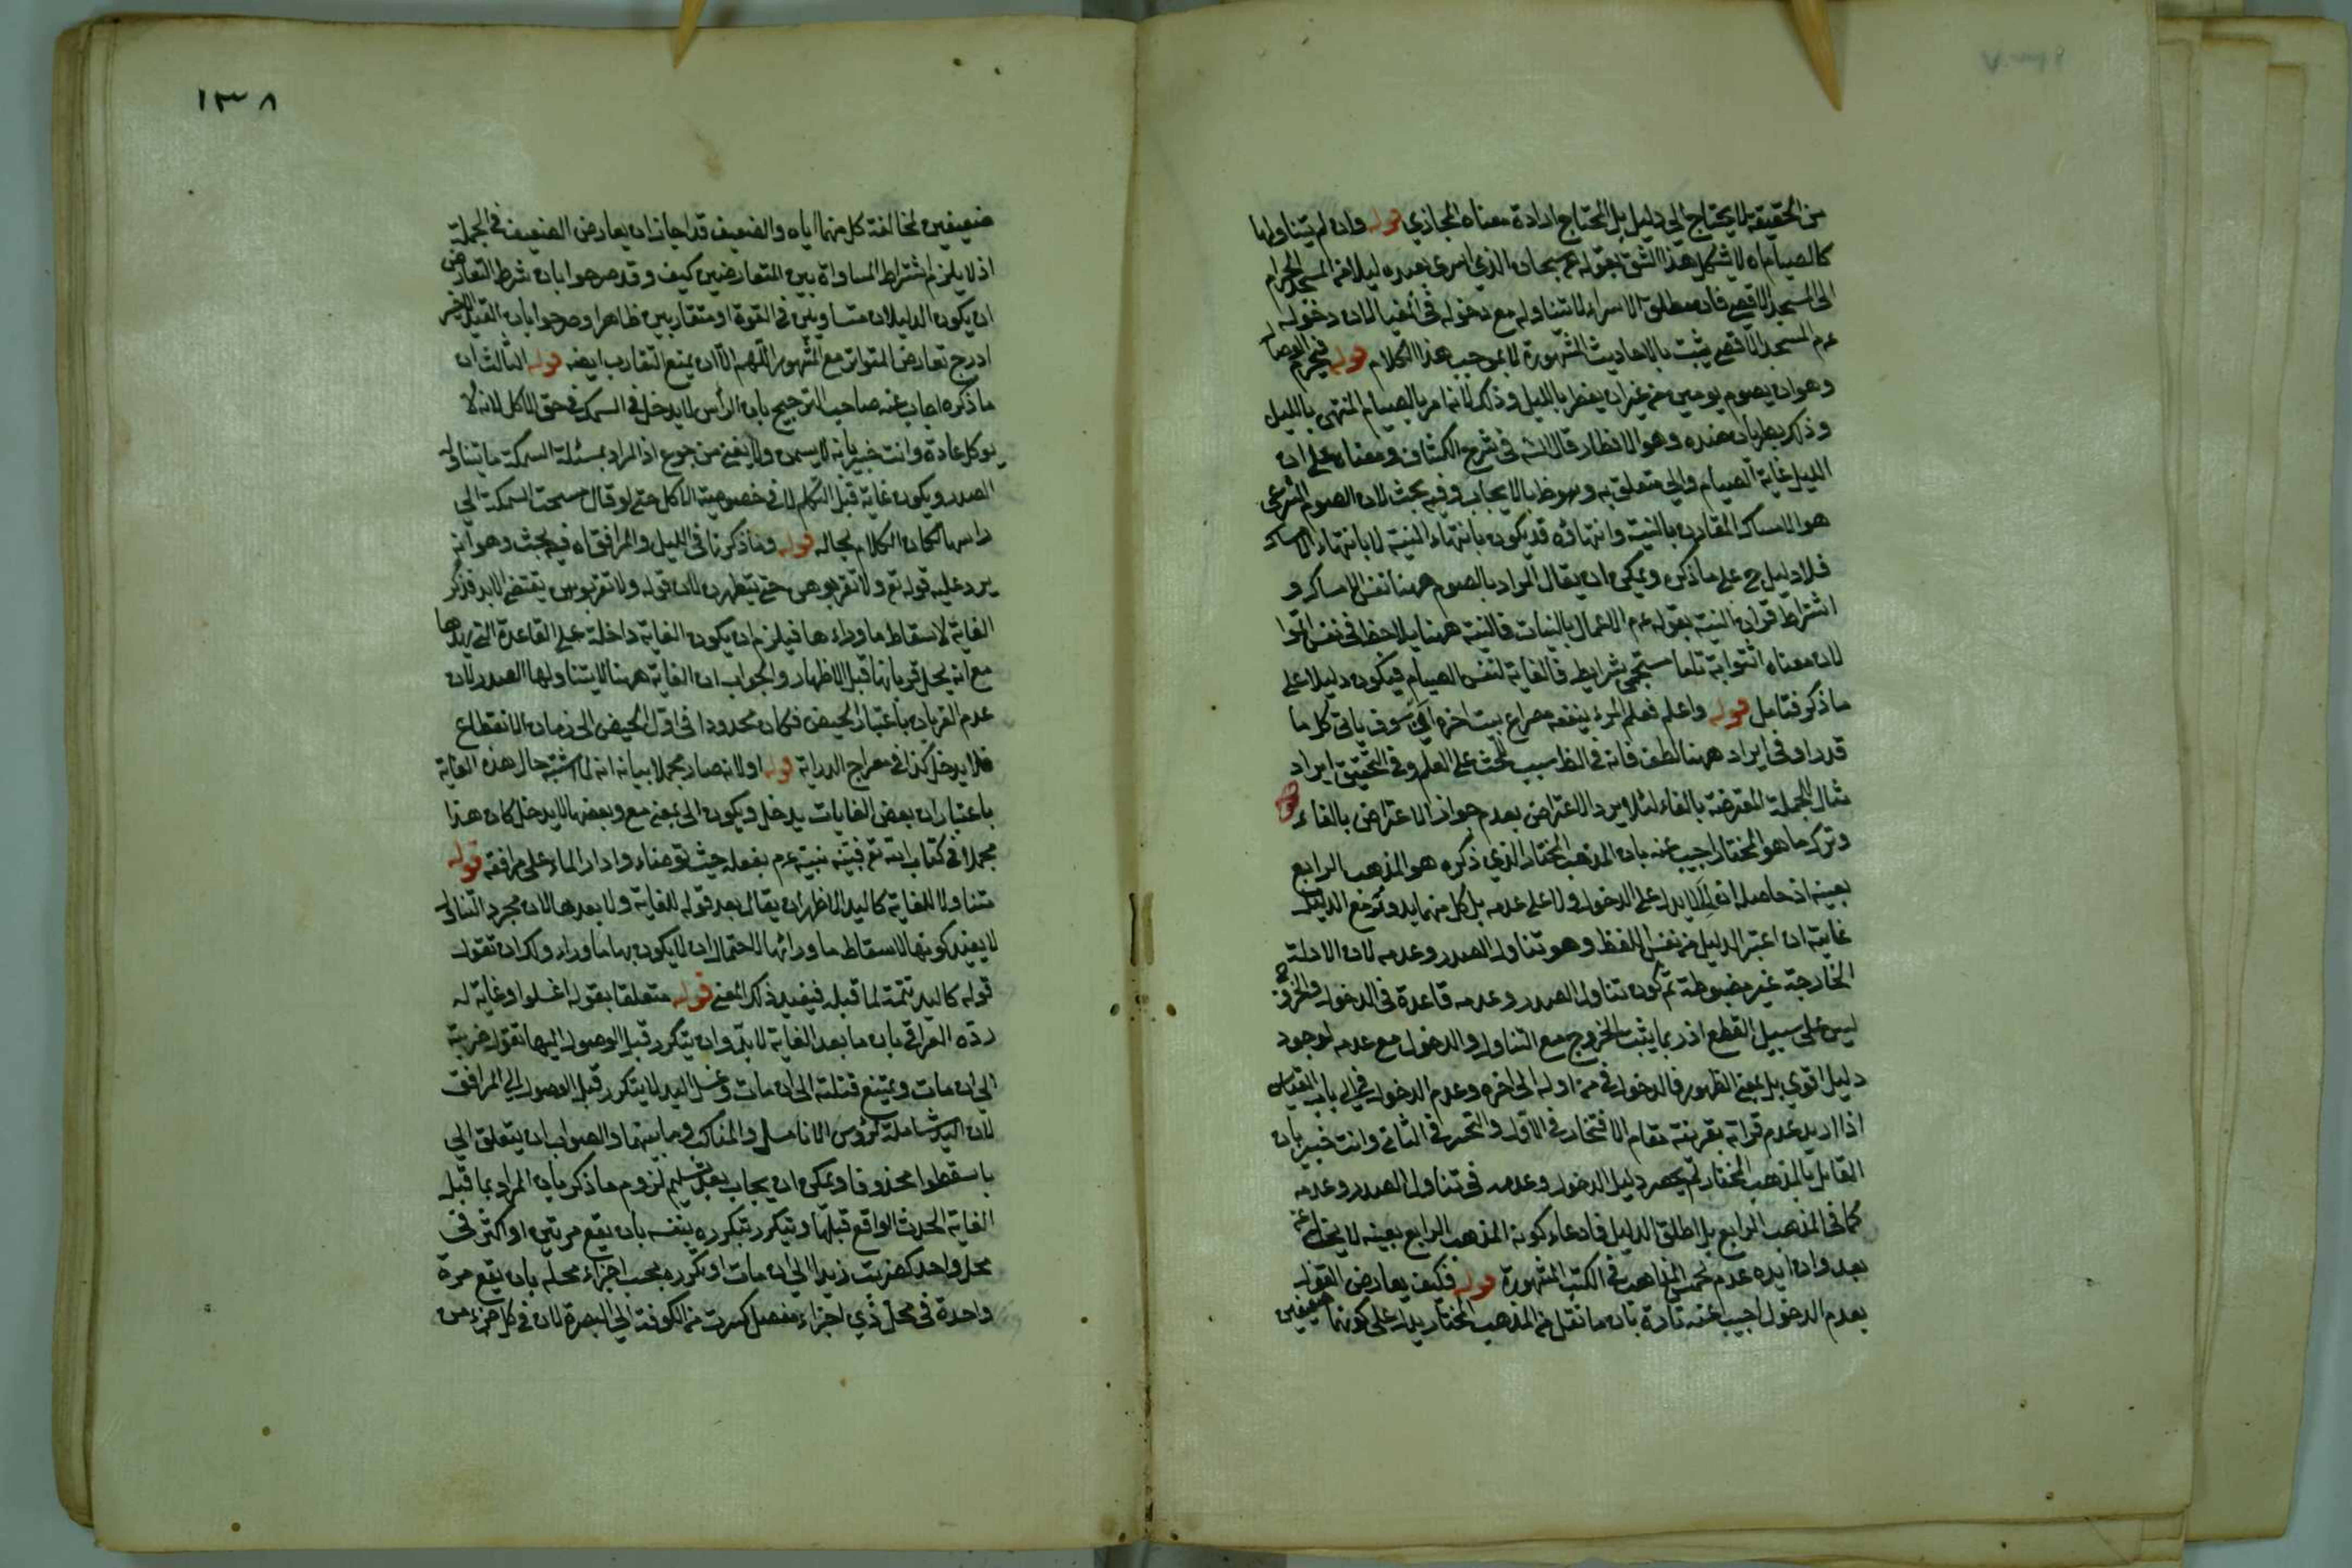 من الحقيقة لا يحتاج الى دليل بل المحتاج ارادة معناه المجازي قوله وان لم يتناولها
كالصيام اه لا يشكل هذا الشق بقوله تع سبحان الذي اسرى بعبده ليلا من المسجد الحرام
الى المسجد الاقصى فان مطلق الاسراء لا يتناوله مع دخوله في المغيا لان دخوله
عم المسجد الاقصى يثبت بالاحاديث المشهورة لا بموجب هذا الكلام قوله فيحرم الوصال
وهو ان يصوم يومين من غير ان يفطر بالليل وذلك لانه امر بالصيام المنتهى بالليل
وذلك بطريان ضده وهو الافطار قال الشـ في شرح الكشاف ومعناه على ان
الليل غاية الصيام والى متعلق به بالايجاب وفيه بحث لان الصوم الشرعي
هو الامساك المقارن بالنية وانتهاؤه قد يكون بانتهاء النية لا بانتهاء الامساك
فلا دليل ح على ما ذكره ويمكن ان يقال المراد بالصوم ههنا نفس الامساك و
اشتراط قران النية بقوله عم الاعمال بالنيات فالنية ههنا يلاحظ في نفس اتموا
لان معناه ائتوا به تاما مستجمع شرايط فالغاية لنفس الصيام فيكون دليلا على
ما ذكر فتامل قوله واعلم فعلم المرء ينفعه مصراع بيت اخره ان سوف ياتي كل ما
قدرا وفي ايراده ههنا لطف فانه في النظر سيب للحث على العلم وفي التحقيق ايراد
مثال الجملة المعترضة بالفاء لئلا يرد الاعتراض بعدم جواز الاعتراض بالفاء قوله
وترك ما هو المختار اجيب عنه بان المذهب المختار الذي ذكره هو المذهب الرابع
بعينه اذ حاصله ان الى لا يدل على الدخول ولا على عدمه بل كل منهما يدور مع الدليل
غايته ان اعتبر الدليل من نفس اللفظ وهو تناول الصدر وعدمه لان الادلة
الخارجة غير مضبوطة ثم كون تناول الصدر وعدمه قاعدة في الدخول والخروج
ليس على سبيل القطع اذ ربما يثبت الخروج مع التناول والدخول مع عدمه لوجود
دليل اقوى بل بمعنى الظهور فالدخول في من اوله الى اخره وعدم الدخول في الى باب القياس
اذا اريد عدم قراته بقرينة مقام الافتخار في الاول والتحسر في الثاني وانت خبير بان
القايل بالمذهب المختار لم يحصر دليل الدخول وعدمه في تناول الصدر وعدمه
كما في المذهب الرابع بل اطلق الدليل فادعاء كونه المذهب الرابع بعينه لا يخلو عن
بعد وان ايده عدم المذاهب في الكتب المشهورة قوله فكيف يعارض القول
بعدم الدخول اجيب عنه تارة بان ما نقل من المذهب المختار يدل على كونهما ضعيفين
١٣٨
ضعيفين لمخالفة كل منهما اياه والضعيف قد اجاز ان يعارض الضعيف في الجملة
اذ لا يلزم اشتراط المساواة بين المتعارضين كيف وقد صرحوا بان شرط التعارض
ان يكون الدليلان متساويين في القوة او متقاربين ظاهرا وصرحوا بان القيد الاخير
ادرج تعارض المتواتر مع المشهور اللهم الا ان يمنع التقارب ايضه قوله الثالث ان
ما ذكره اجاب عنه صاحب الترجيح بان الرأس لا يدخل في السمك في حق الاكل لانه لا
يوكل عادة وانت خبير بانه لا يسمن ولا يغني من جوع اذ المراد بمسئلة السمكة ما يتناوله
الصدر ويكون غاية قبل التكلم لا في خصوصية الاكل حتى لو قال مسحت السمكة الى
راسها لكان الكلام بحاله قوله وما ذكرنا في الليل والمرافق اه فيه بحث وهو انه
يرد عليه قوله تع ولا تقربوهن حتى يتطهرن لان قوله ولا تقربوهن يقتضي الابد فذكر
الغاية لاسقاط ما وراءها فيلزم ان يكون الغاية داخلة على القاعدة التي يريدها
مع انه يحل قربانها قبل الاظهار والجواب ان الغاية ههنا لا يتناولها الصدر لان
عدم القربان باعتبار الحيض فكان محدودا في اول الحيض الى زمان الانقطاع
فلا يدخل كذا في معراج الدراية قوله اولا انه صار مجملا بيانه انه لما اشتبه حال هذه الغاية
باعتبار ان بعض الغايات يدخل ويكون الى بمعنى مع وبعضها لا يدخل كان هذا
مجملا في كتاب الله تع فبينه نبيه عم بفعله حيث توضاء وادار الماء على مرافقه قوله
متناولا للغاية كاليد الاظهر ان يقال بعد قوله للغاية ولا بعدها لان مجرد التناول
لا يفيد كونها لاسقاط ما ورائها لاحتمال ان لا يكون بها ما وراء ولك ان تقول
قوله كاليد تتمة لما قبله فيفيد ذلك المعنى قوله متعلقا بقوله اغسلوا وغاية له
رده العراقي بان ما بعد الغاية لا بد وان يتكرر قبل الوصول اليها تقول ضربته
الى ان مات ويمتنع قتلته الى ان مات وغسل اليد لا يتكرر قبل الوصول الى المرافق
لان اليد شاملة لرؤس الانامل والمناكب وما بينهما والصواب ان يتعلق الى
باسقطوا محذوفا ويمكن ان يجاب بعد تسليم لزوم ما ذكر بان المراد بما قبل
الغاية الحدث الواقع قبلها ويتكرر بتكرره بنفسه بان يقع مرتين او اكثر في
محل واحد كضربت زيدا الى ان مات او تكرره بحسب اجزاء محله بان يقع مرة
واحدة في محل ذي اجزاء مفصل كسرت من الكوفة الى البصرة لان في كل جزء من